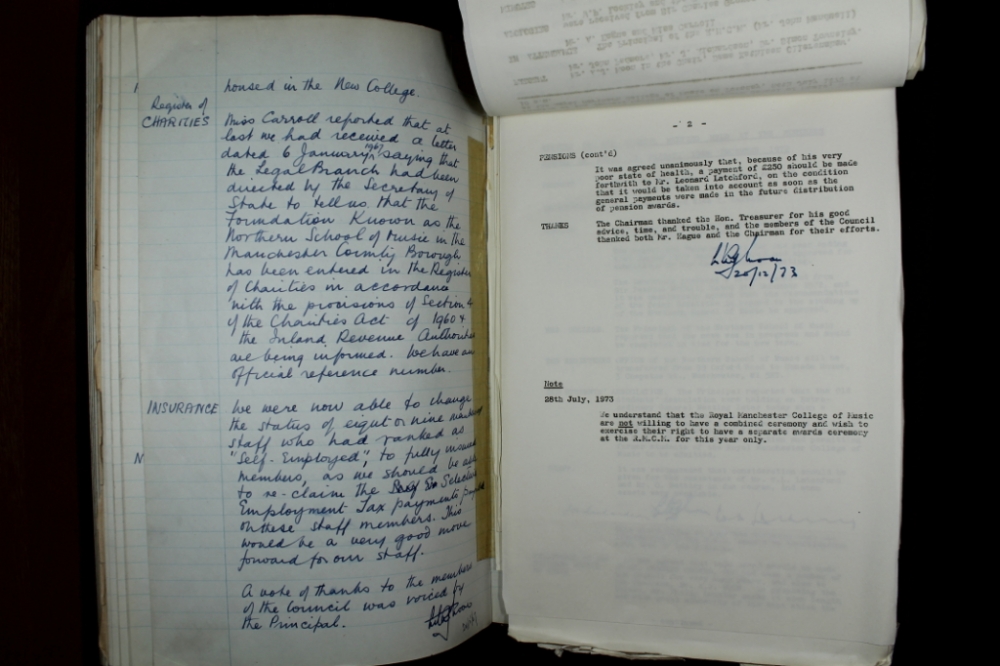 housed in the New College.
Register of
CHARITIES
Miss Carroll reported that at
last we had received a letter
dated 6 January 1967 saying that
the Legal Branch had been
directed by the Secretary of
State to tell us that the
Foundation Known as the
Northern School of Music in the
Manchester County Borough
has been entered in the Register
of Charities in accordance
with the provisions of Section 4
of the Charities Act of 1960 &
the Inland Revenue Authorities
are being informed. We have an
official reference number.
INSURANCE
We were now able to change
the status of eight or nine
staff who had ranked as
"Self-Employed", to fully insured
members, as we should be able
to re-claim the Selective
Employment Tax payments
on these staff members. This
would be a very good move
forward for our staff.
A vote of thanks to the members
of the Council was voiced by
the Principal.
- 2 -
PENSIONS (cont'd)
It was agreed unanimously that, because of his very
poor state of health, a payment of £250 should be made
forthwith to Mr. Leonard Latchford, on the condition
that it would be taken into account as soon as the
general payments were made in the future distribution
of pension awards.
THANKS
The Chairman thanked the Hon. Treasurer for his good
advice, time, and trouble, and the members of the Council
thanked both Mr. Hague and the Chairman for their efforts.
20/12/73
Note
28th July, 1973
We understand that the Royal Manchester College of Music
are not willing to have a combined ceremony and wish to
exercise their right to have a separate awards ceremony
at the R.M.C.M. for this year only.